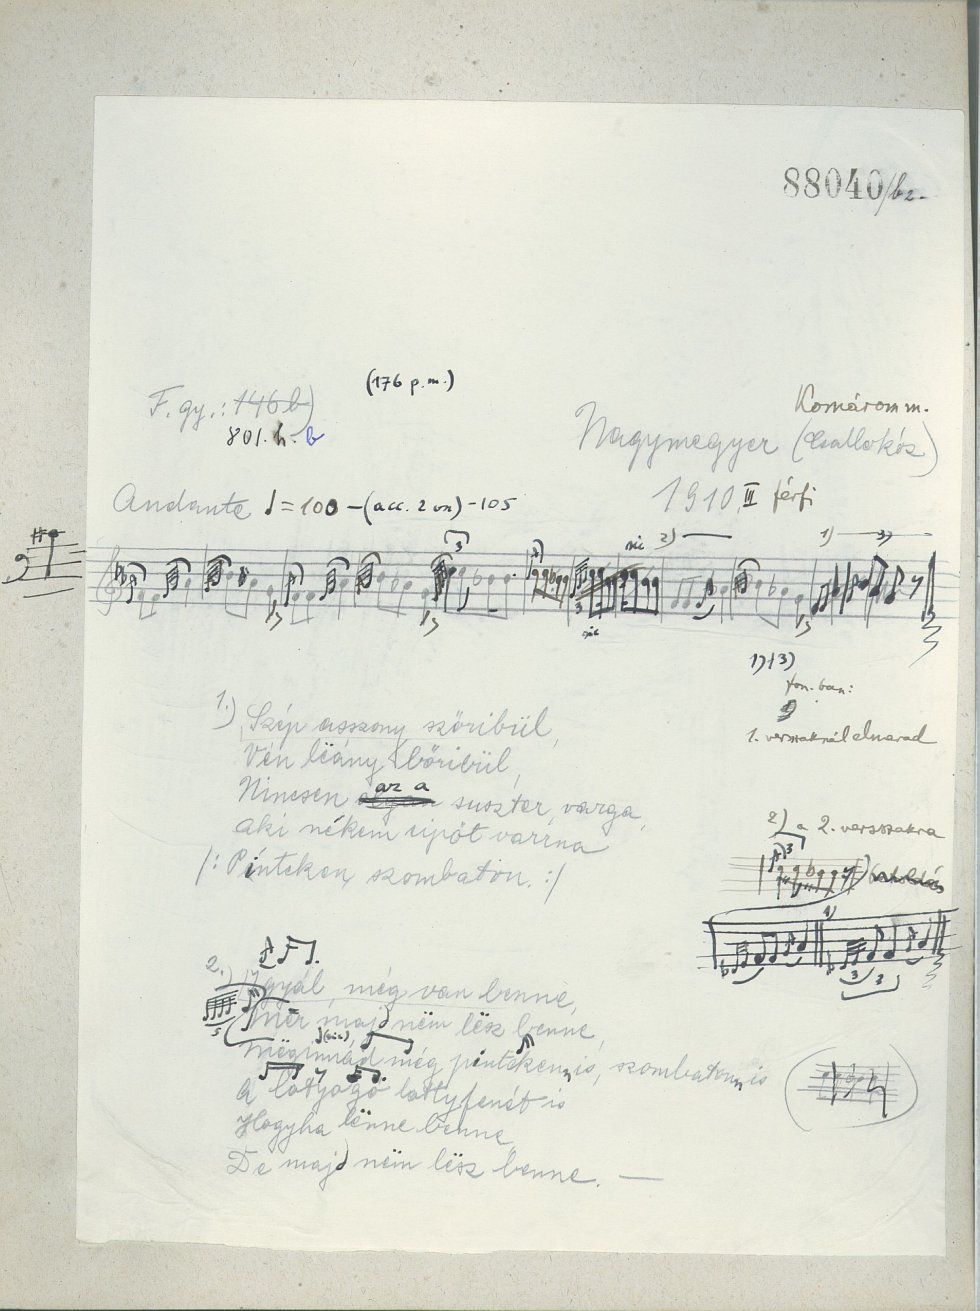 88040/bz.
(176 p.m.)
F. gy.: 146 b)
801. h. b
Komárom m.
Nagymegyer (Csallóköz)
1910. III férfi
Andante ♩=100 -(acc. 2 vn) -105
3
sic
2)
1)
3)
1)
1)
3
sic
1)
1)+3)
fon. ban:
1. versszaknál elmarad
1.) Szép asszony szöribül,
Vén lëány böribül,
Nincsen az a suszter, varga,
aki nékem cipőt varrna
/: Pínteken, szombaton. :/
2) a 2. versszakra
3
1)
3
3
2.) Igyál, még van benne,
Mer majd nëm lësz benne,
5
Mëginnád még píntekenn is, szombatonn is
A lotyogó lottyfenét is
Hogyha lënne benne,
De majd nëm lësz benne. —